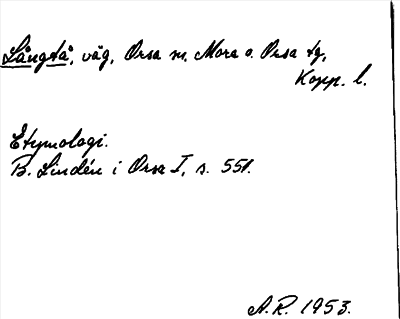 Långtå, väg, Orsa sn. Mora o. Orsa tg,
Kopp. l.
Etymologi.
B. Lindén i Orsa I, s. 551.
A.R. 1953.